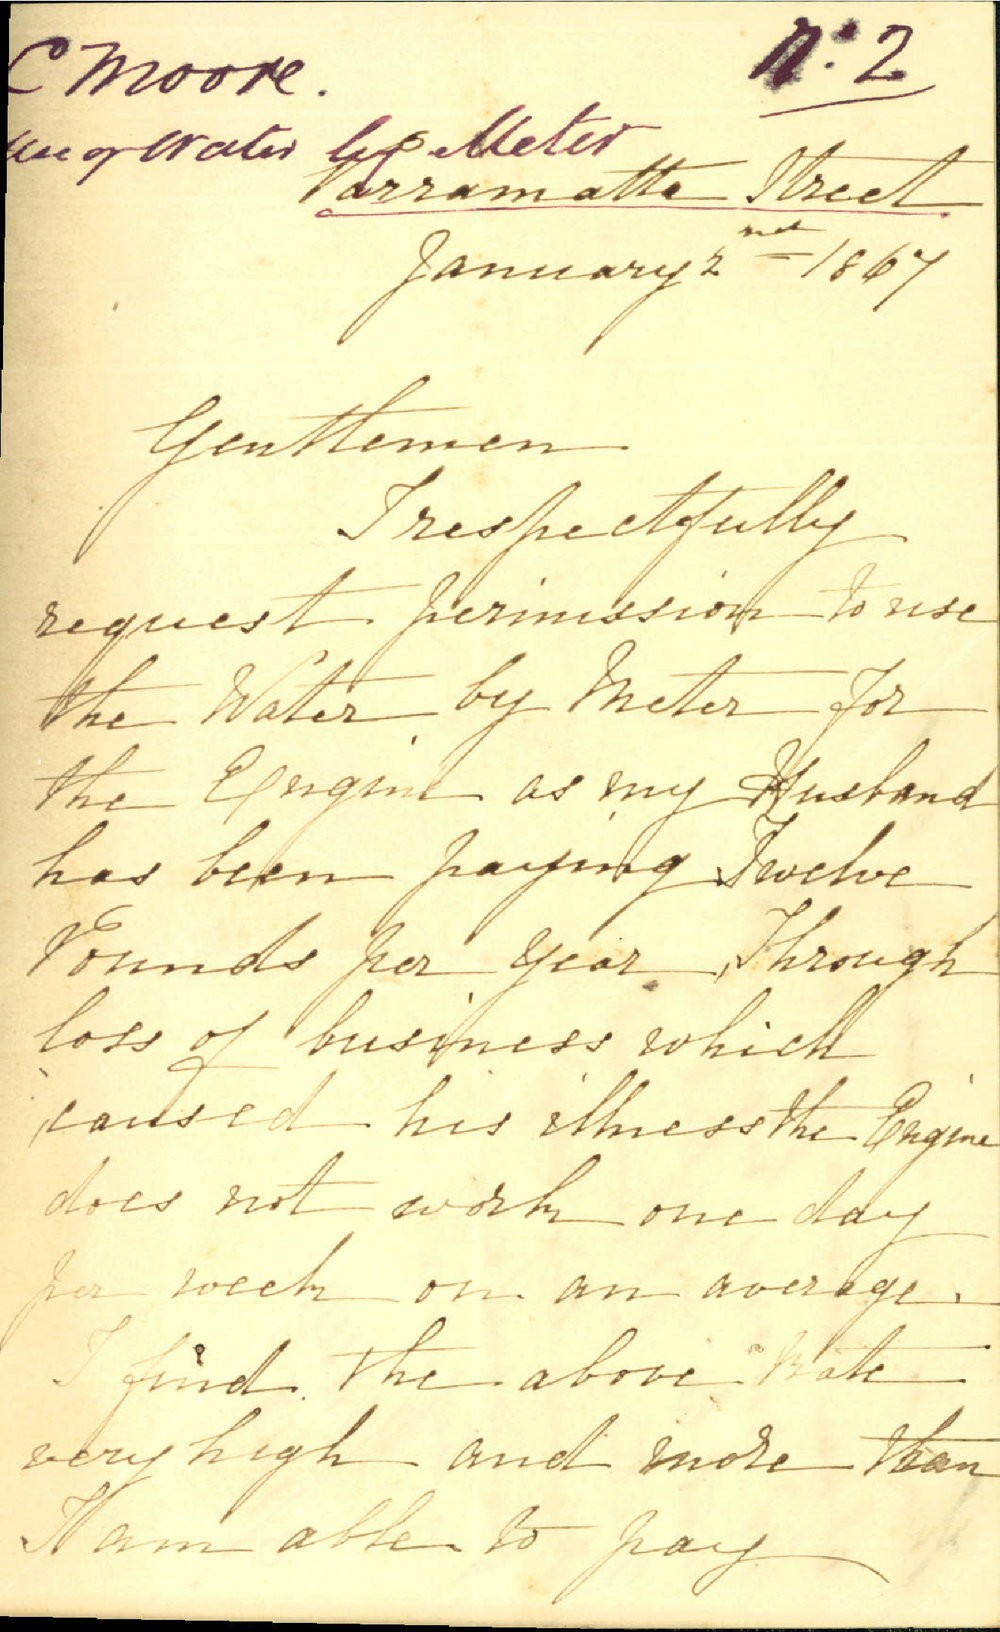 C Moore.
No. 2
Use of Water by Meter
Parramatta Street
January 2nd 1867
Gentlemen
I respectfully
request permission to use
the Water by Meter for
the Engine as my Husband
has been paying Twelve
Pounds per year, Through
loss of business which
caused his illness the Engine
does not work one day
per week on an average.
I find the above Rate
very high and more than
I am able to pay